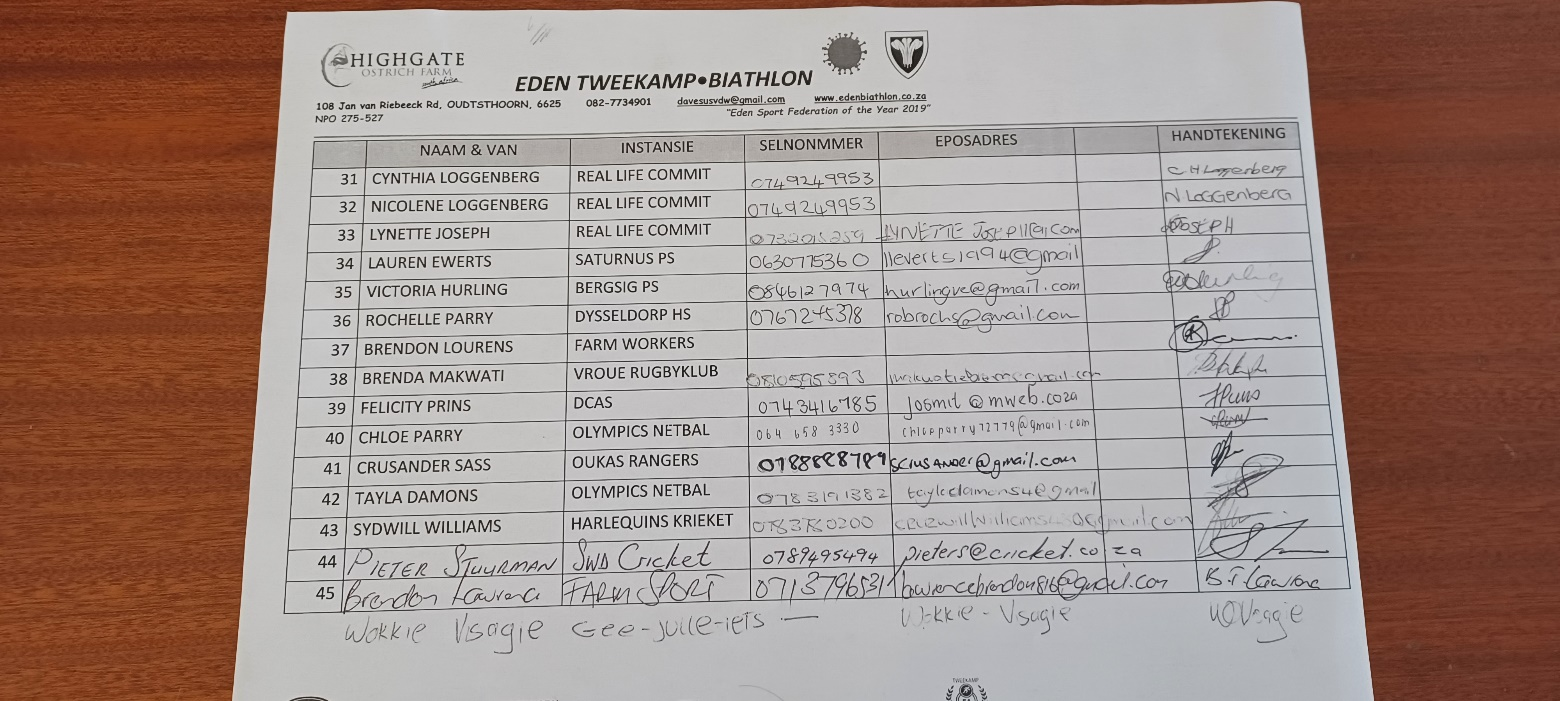 HIGHGATE
OSTRICH FARM
south africa
EDEN TWEEKAMP•BIATHLON
108 Jan van Riebeeck Rd, OUDTSTHOORN, 6625 082-7734901 davesusvdw@gmail.com www.edenbiathlon.co.za
NPO 275-527 "Eden Sport Federation of the Year 2019"
NAAM & VAN INSTANSIE SELNONMMER EPOSADRES HANDTEKENING
31 CYNTHIA LOGGENBERG REAL LIFE COMMIT 0749249953 C H Loggenberg
32 NICOLENE LOGGENBERG REAL LIFE COMMIT 0749249953 N LOGGENBERG
33 LYNETTE JOSEPH REAL LIFE COMMIT LYNETTE JOSEPH
34 LAUREN EWERTS SATURNUS PS 0630775360 lleverts1994@gmail
35 VICTORIA HURLING BERGSIG PS 0846127974 hurlingve@gmail.com
36 ROCHELLE PARRY DYSSELDORP HS 0767245378 robrochs@gmail.com
37 BRENDON LOURENS FARM WORKERS
38 BRENDA MAKWATI VROUE RUGBYKLUB 0810595893
39 FELICITY PRINS DCAS 0743416785 josmit@mweb.coza
40 CHLOE PARRY OLYMPICS NETBAL 064 658 3330 chloeparry72779@gmail.com
41 CRUSANDER SASS OUKAS RANGERS 0788888789 scrusander@gmail.com
42 TAYLA DAMONS OLYMPICS NETBAL 0783191382 tayladamons4@gmail
43 SYDWILL WILLIAMS HARLEQUINS KRIEKET 0783780200
44 PIETER STUURMAN SWD Cricket 0789495494 pieters@cricket.co za
45 Brendon Lawrence FARM SPORT 0713796531 lawrencebrendon816@gmail.com B.J Lawrence
Wokkie Visagie Gee-julle-iets — Wokkie - Visagie WVisagie
TWEEKAMP